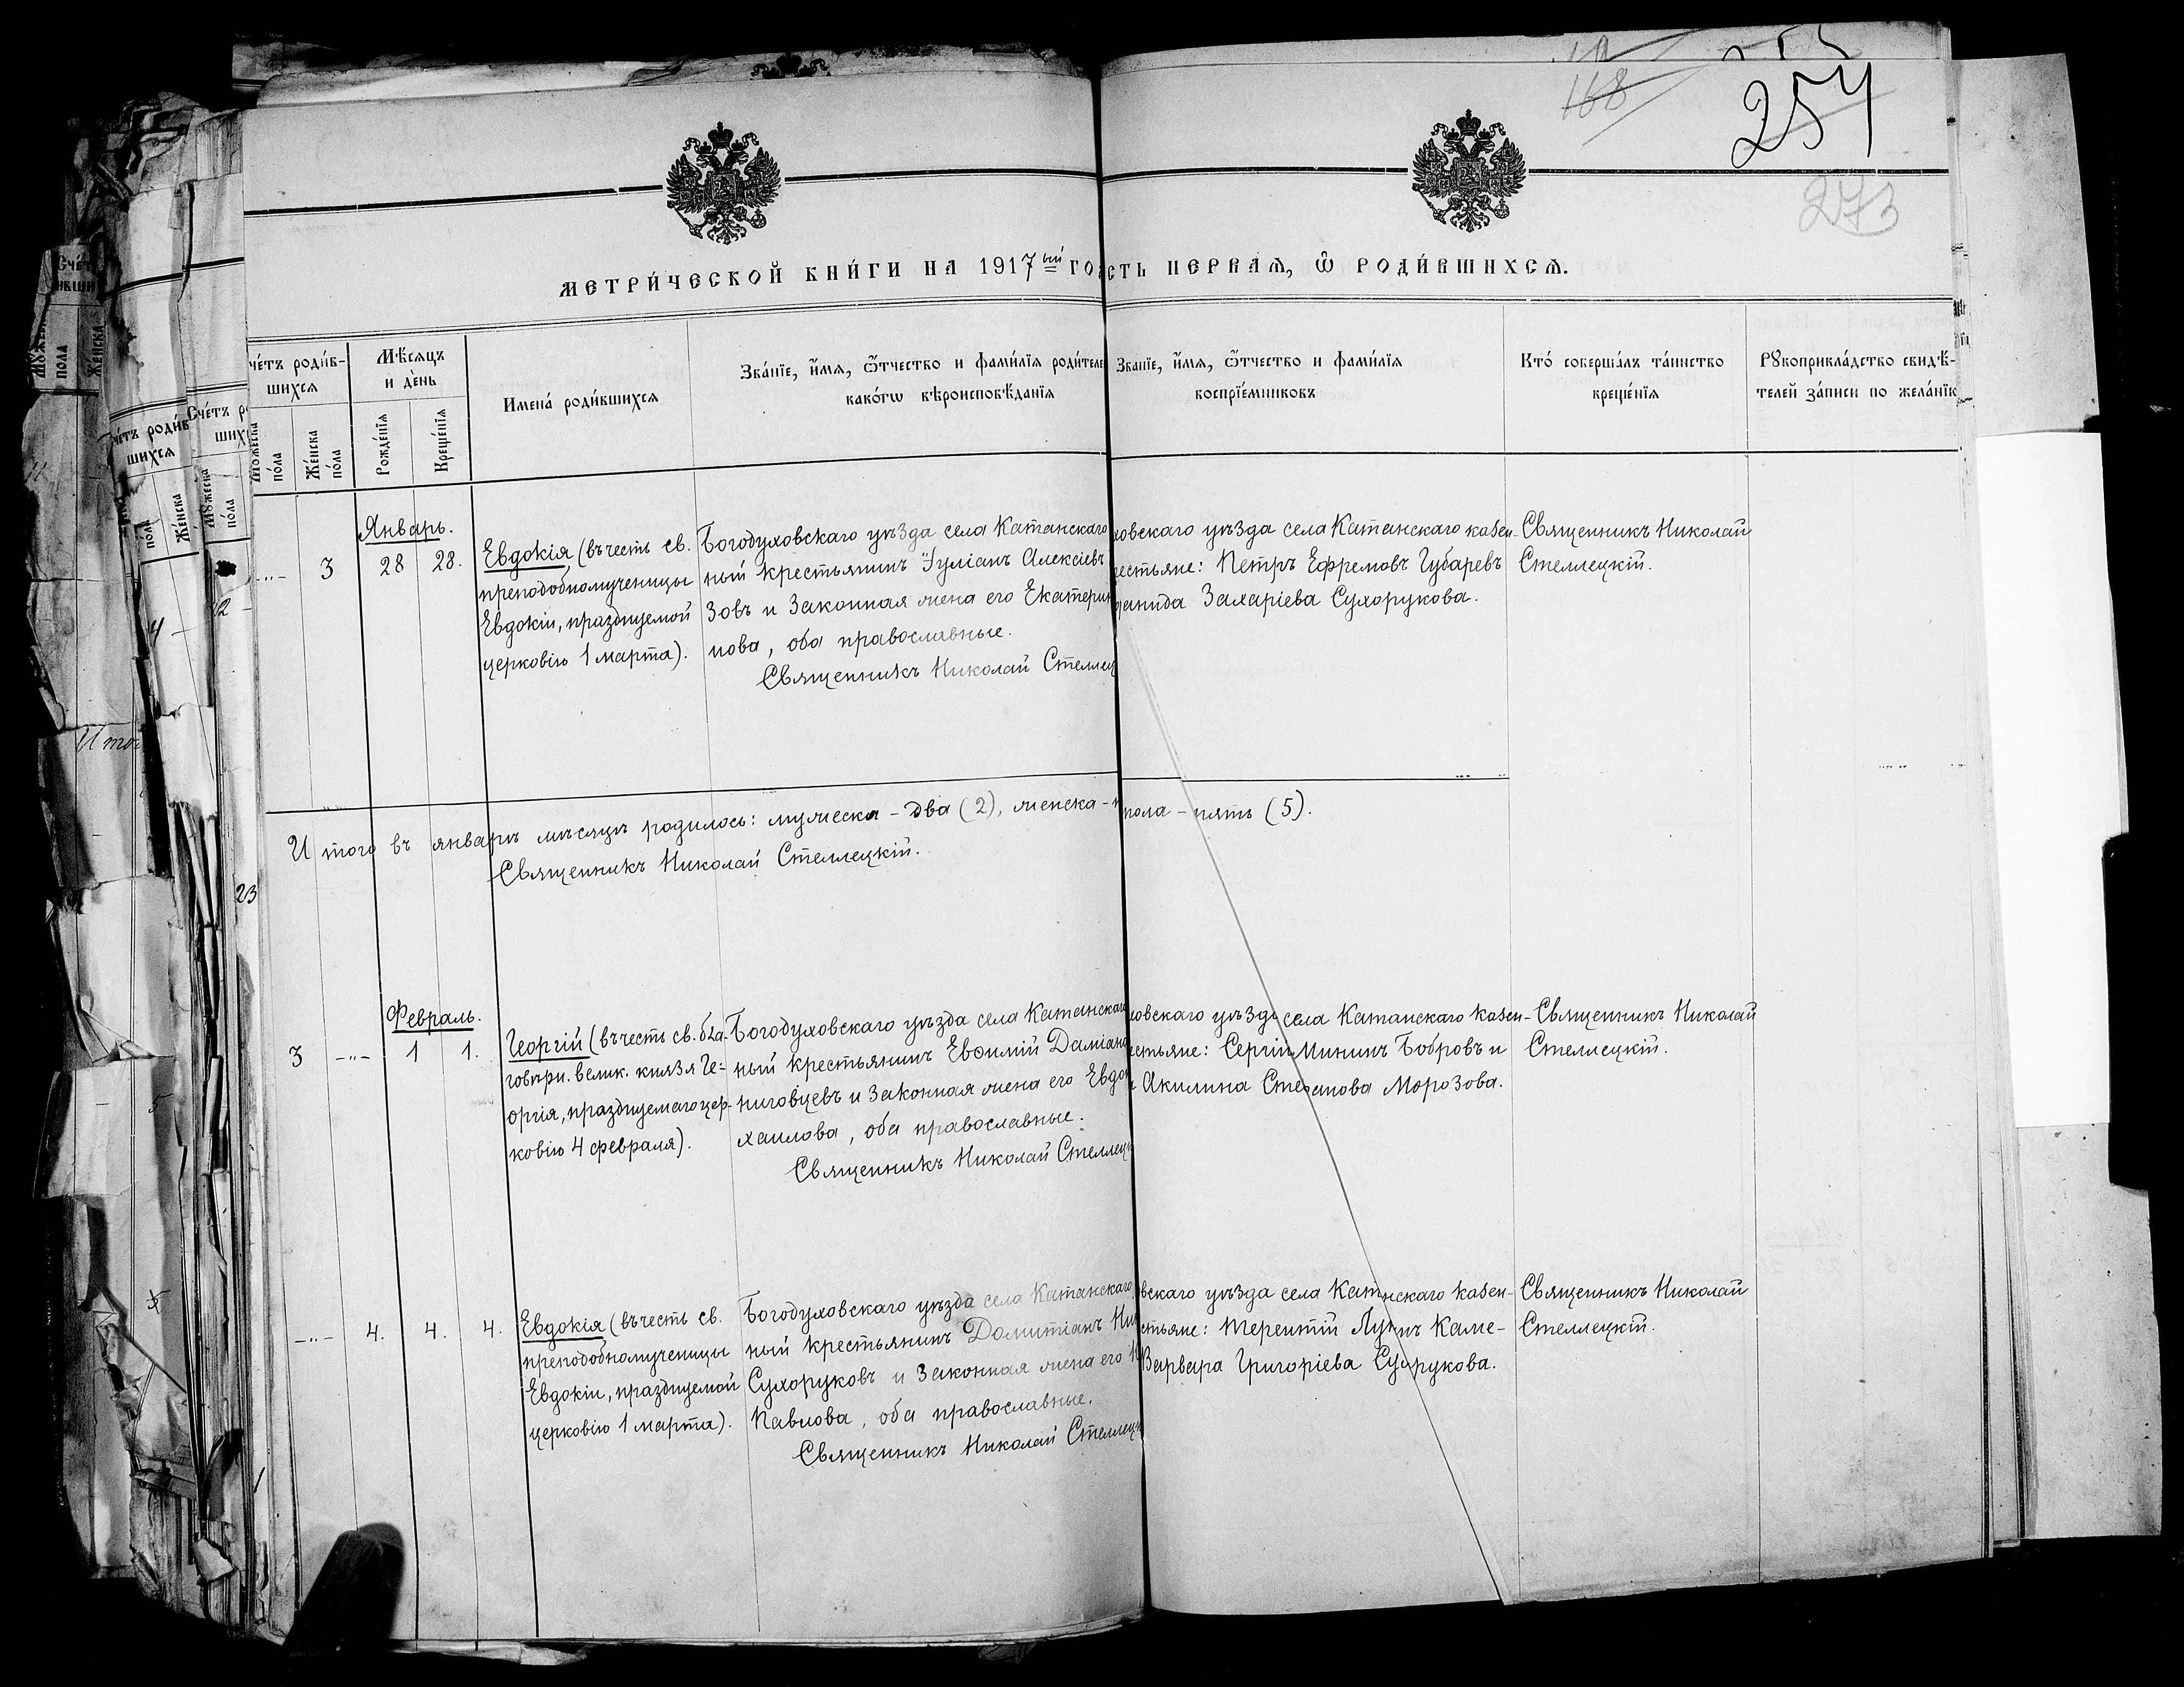 168
257
273
МЕТРИ́ЧЕСКОЙ КНИ́ГИ НА 1917ый ГО
СТЬ ПЕРВАѦ, Ѿ РОДИ́ВШИХСѦ.
че́тъ роди́в-
шихсѧ
Мꙋ́жеска по́ла
Же́нска по́ла
Мѣ́сѧцъ
и де́нь
Рожде́нїѧ
Креще́нїѧ
Имена̀ роди́вшихсѧ
Зва́нїе, и́мѧ, ѻ́тчество и фами́лїѧ роди́теле
како́гѡ вѣроисповѣ́данїѧ
Зва́нїе, и́мѧ, ѻ́тчество и фами́лїѧ
воспрїе́мниковъ
Кто̀ соверша́лъ та́инство
креще́нїѧ
Рꙋкоприкла́дство свидѣ́-
телей за́писи по жела́нїю
Январь.
-"- 3 28 28.
Евдокія (въ честь св.
преподобномученицы
Евдокіи, празднуемой
церковію 1 марта).
Богодуховскаго уѣзда села Катанскаго
ный крестьянинъ Іуліанъ Алексіевъ
зовъ и законная жена его Екатерин
нова, оба православные.
Священникъ Николай Стеллец
ховскаго уѣзда села Катанскаго казен-
естьяне: Петръ Ефремовъ Губаревъ
Захаріева Сухорукова.
Священникъ Николай
Стеллецкій.
Итого въ январѣ мѣсяцѣ родилось: мужеска - два (2), женска -
пола - пять (5).
Священникъ Николай Стеллецкій.
Февраль.
3 -"- 1 1.
Георгій (въ честь св. бла-
говѣрн. велик. князя Ге-
оргія, празднуемаго цер-
ковію 4 февраля).
Богодуховскаго уѣзда села Катанскаго
ный крестьянинъ Евѳимій Даміано
ниговцевъ и законная жена его Евдок
хаилова, оба православные.
Священникъ Николай Стеллецк
ховскаго уѣзда села Катанскаго казен-
естьяне: Сергій Мининъ Бобровъ и
Акилина Стефанова Морозова.
Священникъ Николай
Стеллецкій.
-"- 4. 4. 4.
Евдокія (въ честь св.
преподобномученицы
Евдокіи, празднуемой
церковію 1 марта).
Богодуховскаго уѣзда села Катанскаго
ный крестьянинъ Домитіанъ Ни
Сухоруковъ и законная жена его
Павлова, оба православные.
Священникъ Николай Стеллецк
вскаго уѣзда села Катанскаго казен-
стьяне: Терентій Лукинъ Каме-
Варвара Григоріева Сухорукова.
Священникъ Николай
Стеллецкій.